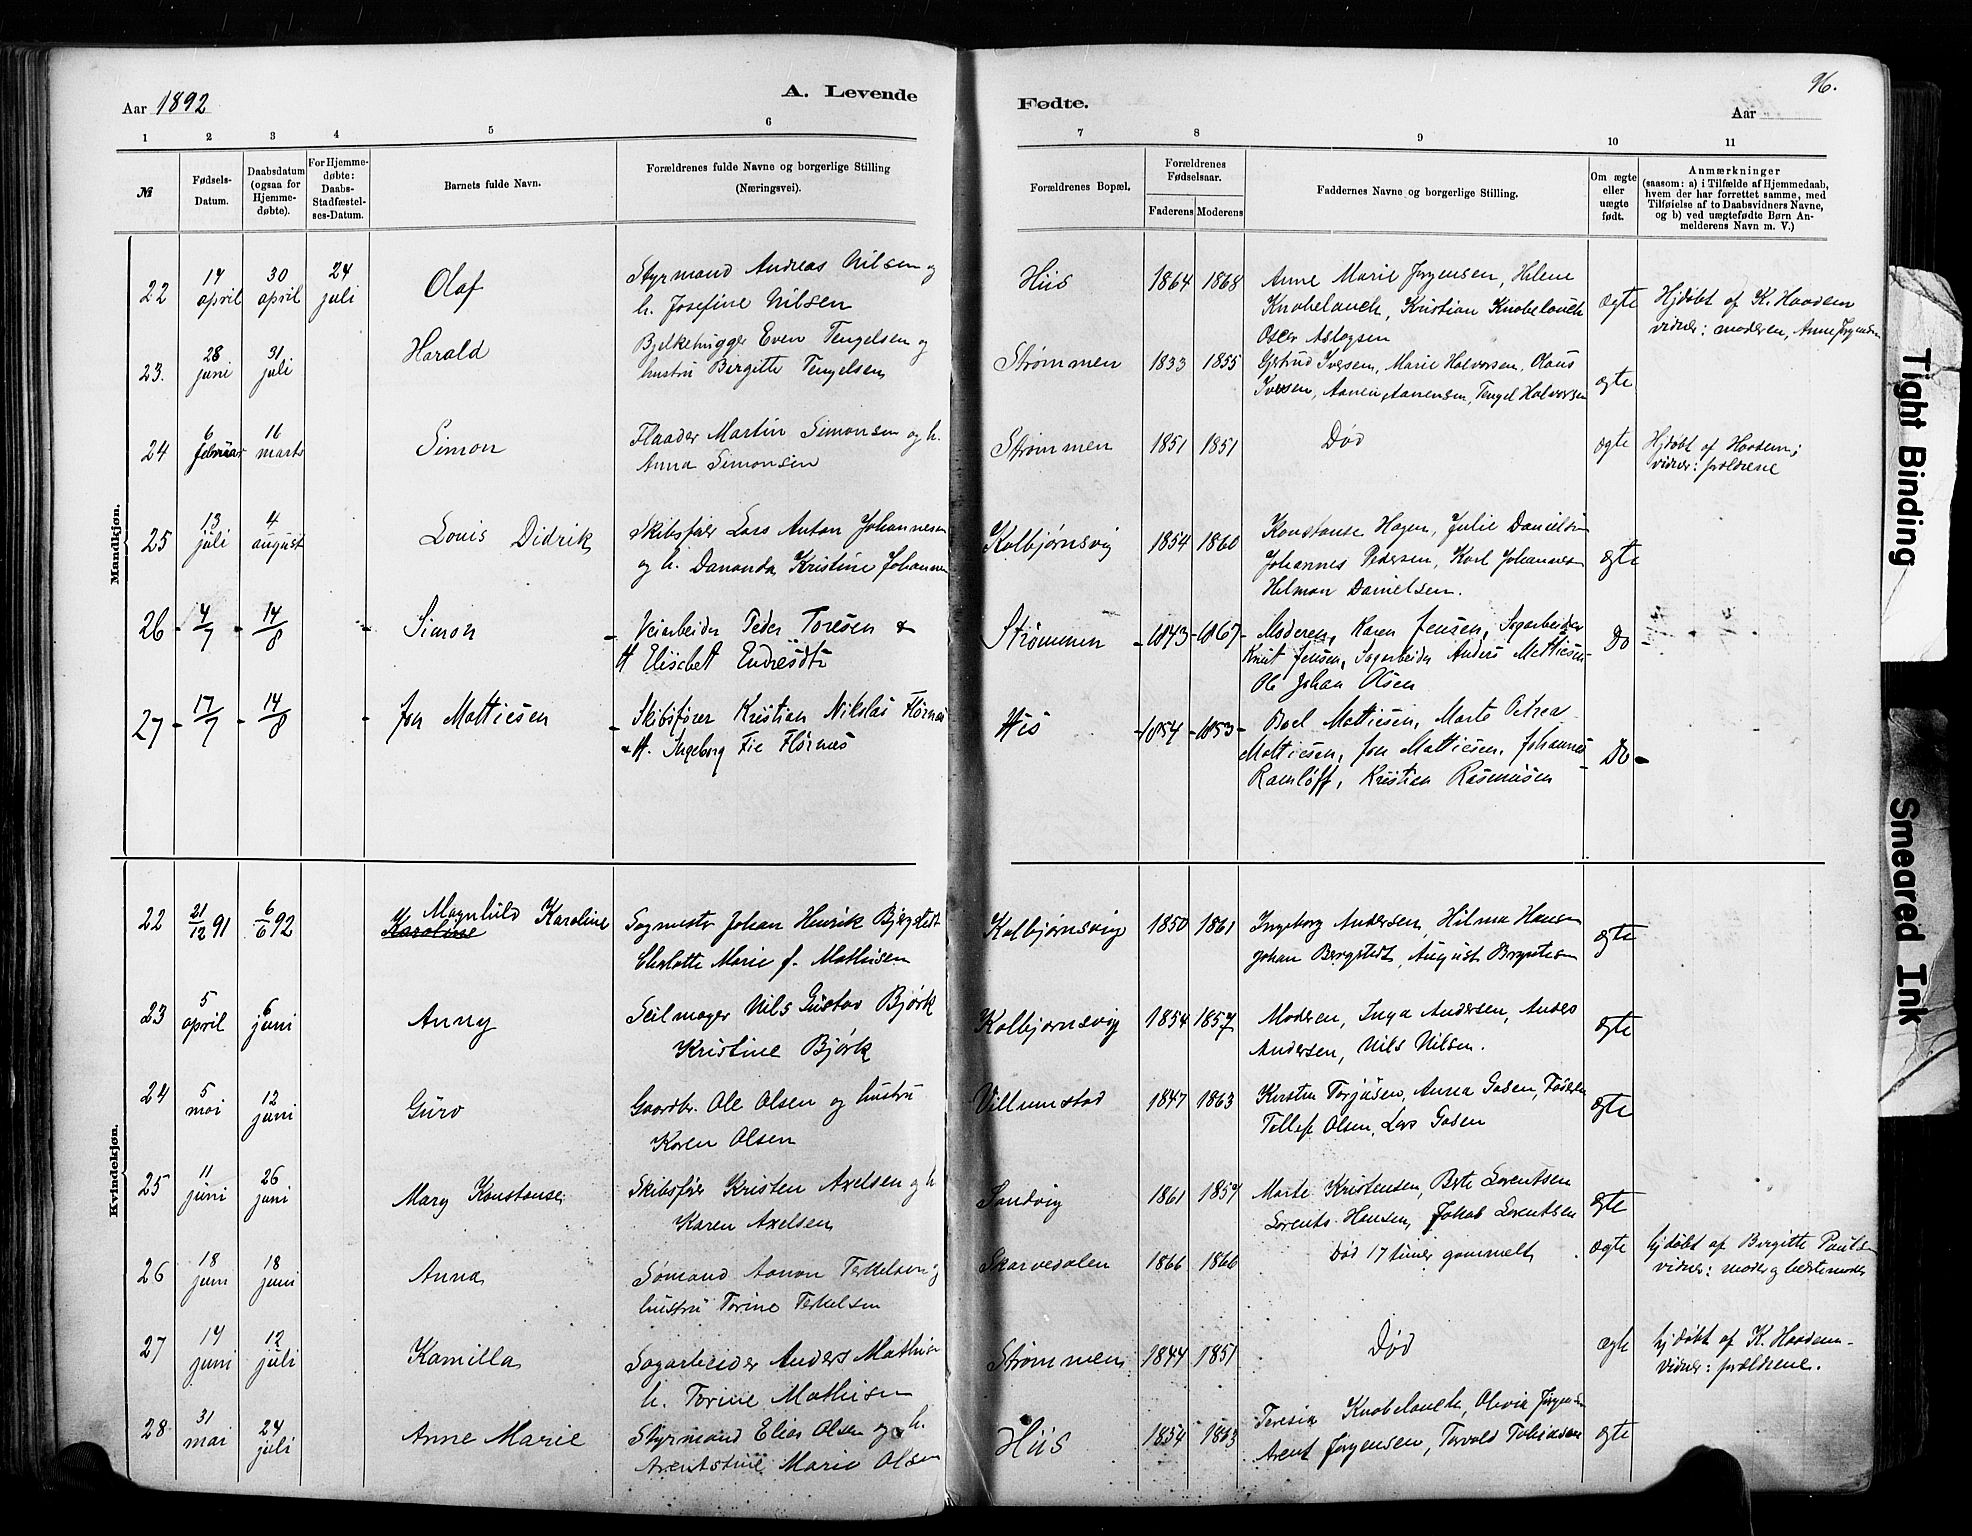 Aar 1892
A. Levende
Fødte.
96.
Aar
1 2 3 4 5 6 7 8 9 10 11
№
Fødsels-
Datum.
Daabsdatum
(ogsaa for
Hjemme-
døbte).
For Hjemme-
døbte:
Daabs-
Stadfæstel-
ses-Datum.
Barnets fulde Navn.
Forældrenes fulde Navne og borgerlige Stilling
(Næringsvei).
Forældrenes Bopæl.
Forældrenes
Fødselsaar.
Faderens Moderens
Faddernes Navne og borgerlige Stilling.
Om ægte
eller
uægte
født.
Anmærkninger
(saasom: a) i Tilfælde af Hjemmedaab,
hvem der har forrettet samme, med
Tilføielse af to Daabsvidners Navne,
og b) ved uægtefødte Børn An-
melderens Navn m. V.)
Mandkjøn.
22 april 30 april 24 juli Olaf
Styrmand Andreas Nilsen og
h. Josefine Nilsen
Hiis 1864 1868
Anne Marie Jørgensen, Helene
Knobelauch, Kristian Knobelauch
Oscar Aslagsen
ægte
Hjdøbt af K. Haadem
vidner: moderen, Anne Jørgensen
23. 28 juni 31 juli Harald
Bjelkehugger Even Tengelsen og
hustru Birgitte Tengelsen
Strømmen 1833 1855
Gjertrud Iversen, Marie Halvorsen, Olaus
Iversen, Aanen Aanensen, Tengel Halvorsen
ægte
24 6 februar 16 marts Simon
Flaader Martin Simonsen og h.
Anna Simonsen
Strømmen 1851 1851
Død
ægte
Hjdøbt af Haadem;
vidner: forældrene
25 13 juli 4 august Louis Didrik
Skibsfører Lars Anton Johannesen
og h. Danonda Kristine Johannesen
Kolbjørnsvig 1854 1860
Konstanse Hagen, Julie Danielsen
Johannes Pedersen, Karl Johannesen
Helman Danielsen.
ægte
26 - 4/7 - 14/8 - Simon
Veiarbeider Peder Toresen &
H. Elisebet Endresdtr
Strømmen - 1843 - 1867 -
Moderen, Karen Jensen, Sagarbeider
Knut Jensen, Sagarbeider Anders Mattiesen
Ole Johan Olsen
Do -
27 - 17/7 - 14/8 - Jon Mattiesen
Skibsfører Kristian Nikolai Flørnæs
& H. Ingeborg Fie Flørnæs
His - 1854 - 1853 -
Boel Mattiesen, Marte Petrea
Mattiesen, Jon Mattiesen, Johannes
Ramløff, Kristian Rasmussen
Do -
Kvindekjøn.
22 21/12 91 6/6 92 Magnhild Karoline
Karoline
Sagmester Johan Henrik Bjergstedt
Charlotte Marie f. Mathisen
Kolbjørnsvig 1850 1861
Ingeborg Andersen, Hilma Hansen
Johan Bergstedt, August
ægte
23 5 april 6 juni Anny
Seilmager Nils Gustav Bjørk
Kristine Bjørk
Kolbjørnsvig 1854 1857
Moderen, Inga Andersen, Anders
Andersen, Nils Nilsen.
ægte
24 5 mai 12 juni Guro
Gaardbr. Ole Olsen og hustru
Karen Olsen
Villumstad 1847 1863
Kirsten Torjusen, Anna Gasen, Faderen
Tellef Olsen, Lars Gasen
ægte
25 11 juni 26 juni Mary Konstanse
Skibsfører Kristen Axelsen og h
Karen Axelsen
Sandvig 1861 1857
Marte Kristensen, Berte Lorentsen
Lorents Hansen, Jakob Lorentsen
ægte
26 18 juni 18 juni Anna
Sømand Aanon Terkelsen og
hustru Torine Terkelsen
Skarvedalen 1866 1860
Død 17 timer gammelt
ægte
hjdøbt af Birgitte Paulsen
vidner: moder og bedstemoder
27 14 juni 12 juli Kamilla
Sagarbeider Anders Mathisen
h. Torine Mathisen
Strømmen 1844 1851
Død
ægte
hjdøbt af K. Haadem
vidner: forældrene.
28 31 mai 24 juli Anne Marie
Styrmand Elias Olsen og h.
Arentstine Marie Olsen
Hiis 1854 1863
Teresia Knobelauch, Olivia Jørgensen
Arent Jørgensen, Torvald Tobiassen
ægte
Tight Binding
Smeared Ink